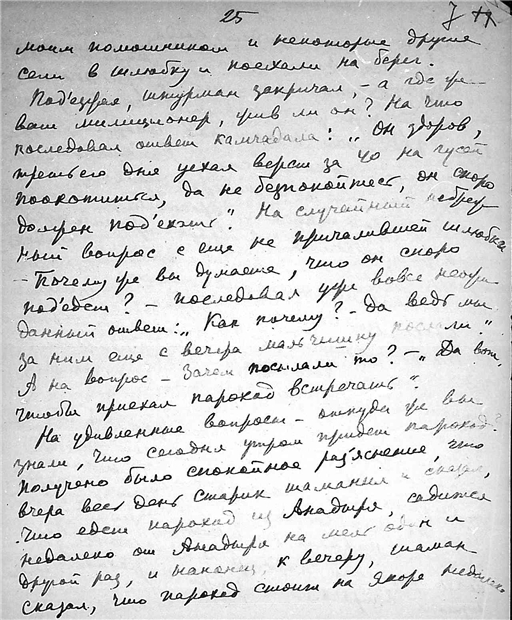 25
моим помошником и некоторые другие
сели в шлюбку и поехали на берег.
Под'езжая, штурман закричал, – а где же
ваш милиционер, жив ли он? На что
последовал ответ камчадала: „Он здоров,
третьего дня уехал верст за 40 на гусей
поохотиться, да не безпокойтесь, он скоро
должен под'ехать". На случайный небреж-
ный вопрос с еще не причалившей шлюбки
– Почему же вы думаете, что он скоро
под'едет? – последовал уже вовсе неожи
данный ответ: „Как почему? – Да ведь мы
за ним еще с вечера мальчишку послали"
А на вопрос – Зачем посылали то? – „Да вот,
чтобы приехал пароход встречать".
На удивленные вопросы – откуда же вы
знали, что сегодня утром придет пароход?
получено было спокойное раз'яснение, что
вчера весь день старик шаманил и сказал,
что едет пароход из Анадыря, садится
недалеко от Анадыря на мель один и
другой раз, и наконец, к вечеру, шаман
сказал, что пароход стоит на якоре недалеко